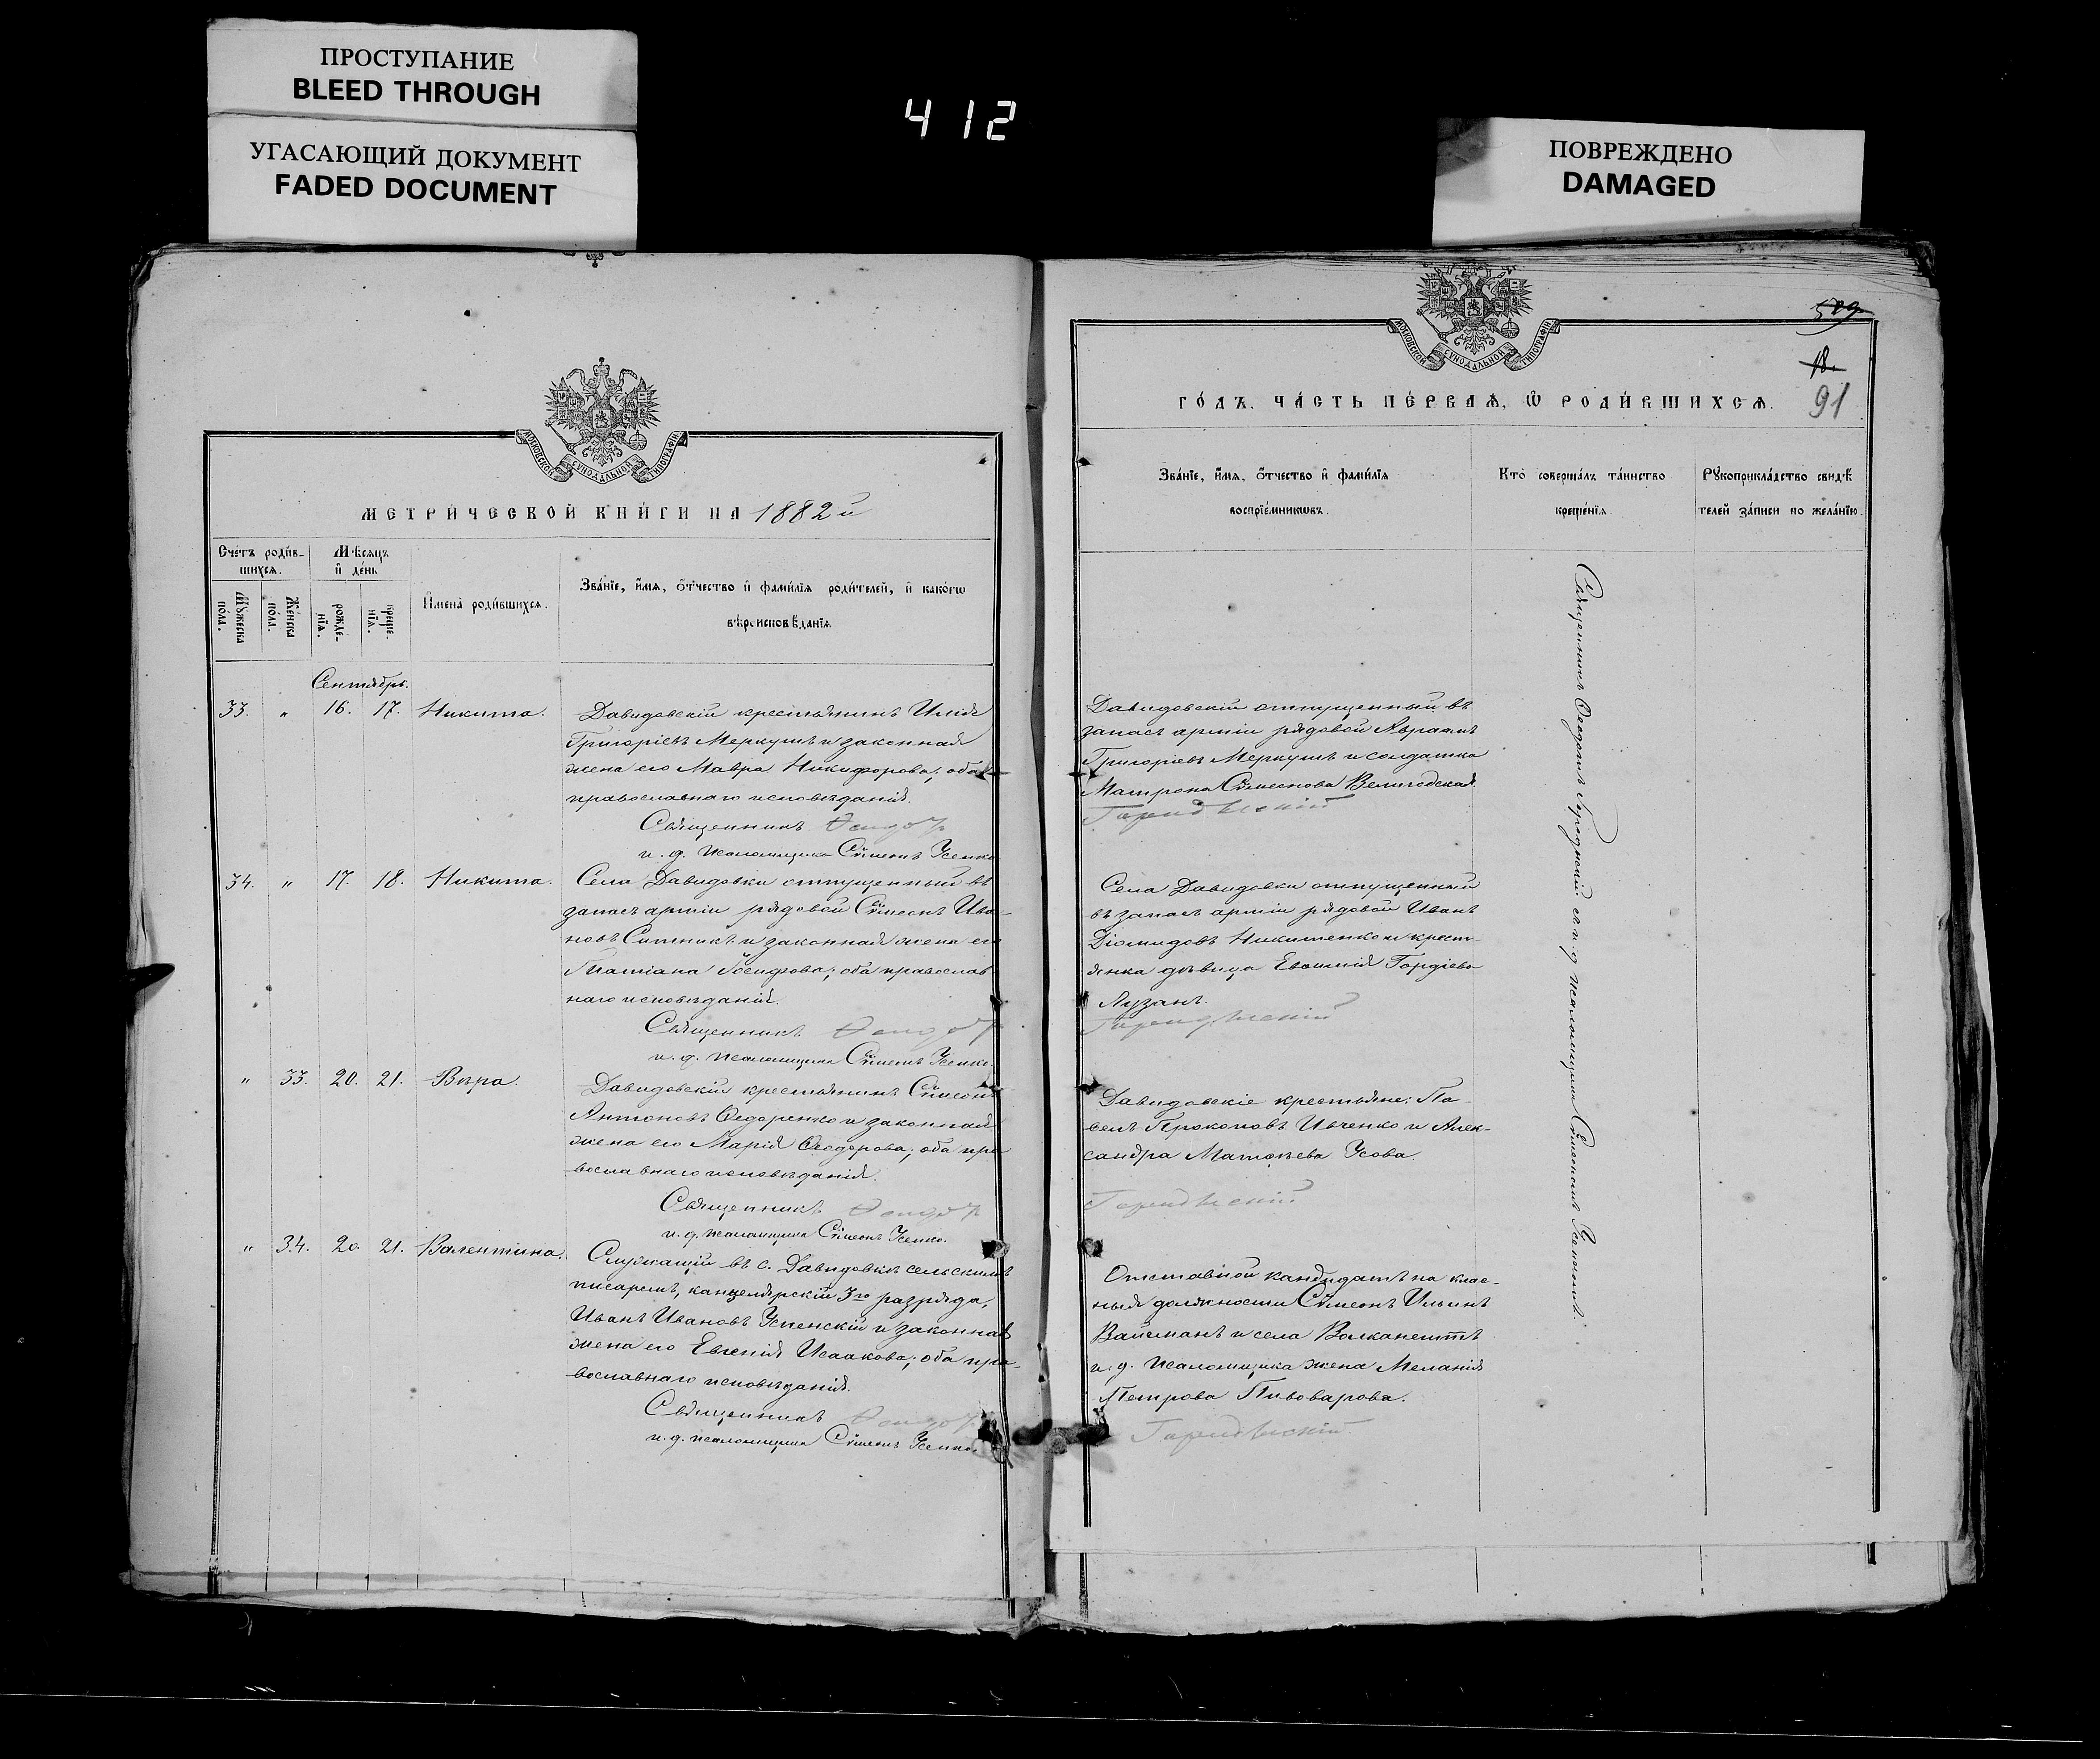 ПРОСТУПАНИЕ
BLEED THROUGH
УГАСАЮЩИЙ ДОКУМЕНТ
FADED DOCUMENT
412
ПОВРЕЖДЕНО
DAMAGED
МОСКОВСКОЙ СѴНОДАЛЬНОЙ ТИПОГРАФІИ
МЕТРИ́ЧЕСКОЙ КНИ́ГИ НА 1882й
Сче́тъ роди́в-
шихсѧ.
Мѣ́сѧцъ
и҆ де́нь
Мꙋ́жеска
по́ла.
Же́нска
по́ла.
рожде́-
нїѧ.
креще́-
нїѧ.
И҆мена̀ роди́вшихсѧ.
Зва́нїе, и҆́мѧ, ѻ҆́тчество и҆ фами́лїѧ роди́телей, и҆ како́гѡ
вѣроисповѣ́данїѧ
Сентябрь.
33. " 16. 17. Никита.
Давидовскій крестьянинъ Илія
Григоріевъ Меркушъ и законная
жена его Мавра Никифорова; оба
православнаго исповѣданія.
Священникъ Ѳеодотъ
и. д. псаломщика Сѵмеонъ Усенко
34. " 17. 18. Никита.
Села Давидовки отпущенный въ
запасъ арміи рядовой Сѵмеонъ Ива-
новъ Ситникъ и законная жена его
Татіана Іосифова; оба православ-
наго исповѣданія.
Священникъ Ѳеодотъ
и. д. псаломщика Сѵмеонъ Усенко
" 33. 20. 21. Вѣра.
Давидовскій крестьянинъ Сѵмеонъ
Антоновъ Ѳедоренко и законная
жена его Марія Ѳеодорова; оба пра
вославнаго исповѣданія.
Священникъ Ѳеодотъ
и. д. псаломщика Сѵмеонъ Усенко.
" 34. 20. 21. Валентина.
Служащій въ с. Давидовкѣ сельскимъ
писаремъ, канцелярскій 3го разряда,
Иванъ Ивановъ Успенскій и законная
жена его Евгенія Исаакова; оба пра-
вославнаго исповѣданія.
Священникъ Ѳеодотъ
и. д. псаломщика Сѵмеонъ Усенко.
МОСКОВСКОЙ СѴНОДАЛЬНОЙ ТИПОГРАФІИ
509
18.
91
ГО́ДЪ, ЧА́СТЬ ПЕ́РВАѦ, Ѡ҆ РОДИ́ВШИХСѦ.
Зва́нїе, и҆́мѧ, ѻ҆́тчество и҆ фами́лїѧ
воспрїе́мникѡвъ.
Кто̀ соверша́лъ та́инство
креще́нїѧ
Рꙋкоприкла́дство свидѣ́
телей за́писи по жела́нїю.
Давидовскій отпущенный въ
запасъ арміи рядовой Авраамъ
Григоріевъ Меркушъ и солдатка
Матрона Сѵмеонова Велигодская.
Села Давидовки отпущенный
въ запасъ арміи рядовой Иванъ
Діомидовъ Никитенко и кресть-
янка дѣвица Евѳимія Гордіева
Лузанъ.
Давидовскіе крестьяне: Па-
велъ Прокоповъ Ивченко и Алек-
сандра Матѳѣева Усова.
Отставной кандидатъ на клас-
ныя должности Сѵмеонъ Ильинъ
Вайсманъ и села Волканештъ
и. д. псаломщика жена Меланія
Петрова Пивоварова.
Священникъ Ѳеодотъ съ и. д. псаломщика Сѵмеономъ Усенкомъ.